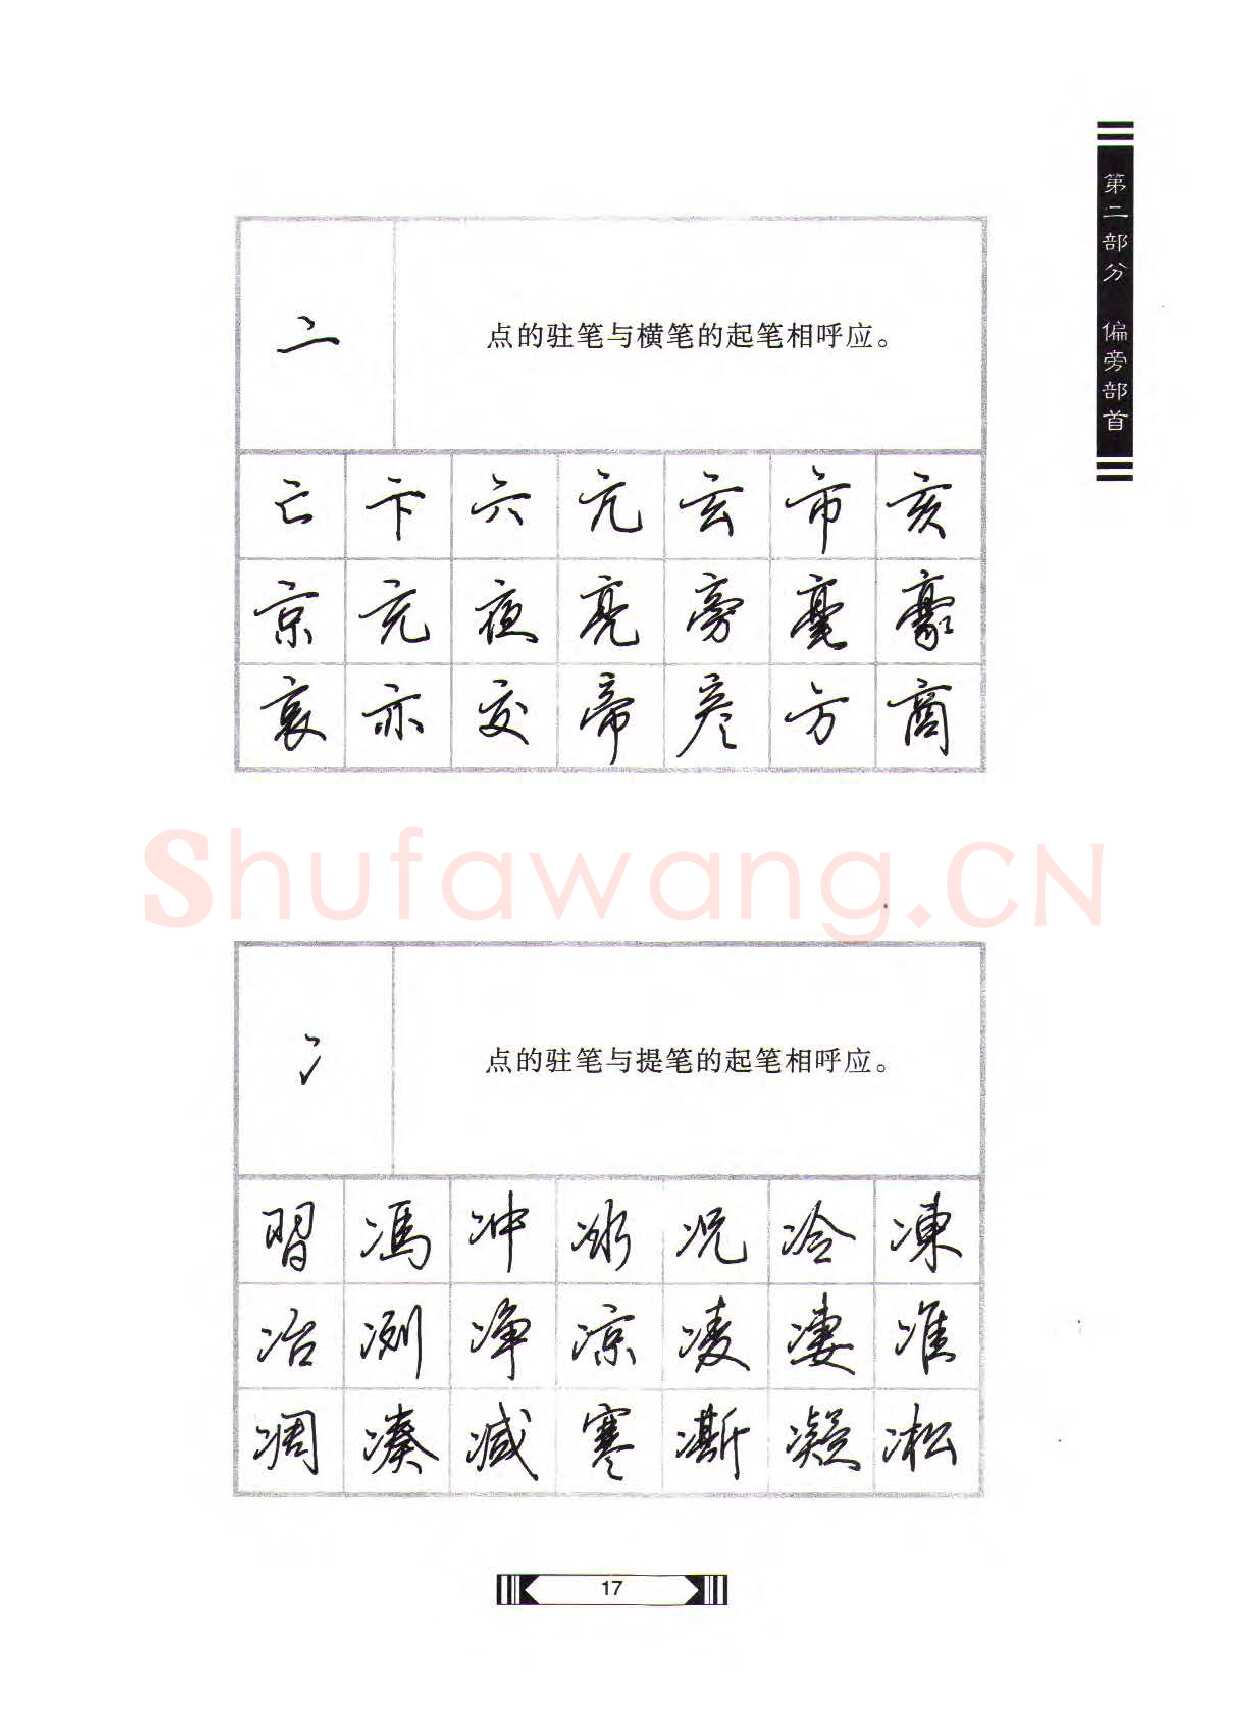 第二部分 偏旁部首
亠 点的驻笔与横笔的起笔相呼应。
亡 卞 六 亢 玄 市 亥
京 充 夜 亮 旁 毫 豪
哀 亦 交 帝 彦 方 商
Shufawang.CN
冫 点的驻笔与提笔的起笔相呼应。
習 馮 冲 冰 况 冷 凍
冶 冽 净 凉 凌 凄 准
凋 凑 减 寒 凘 凝 凇
17